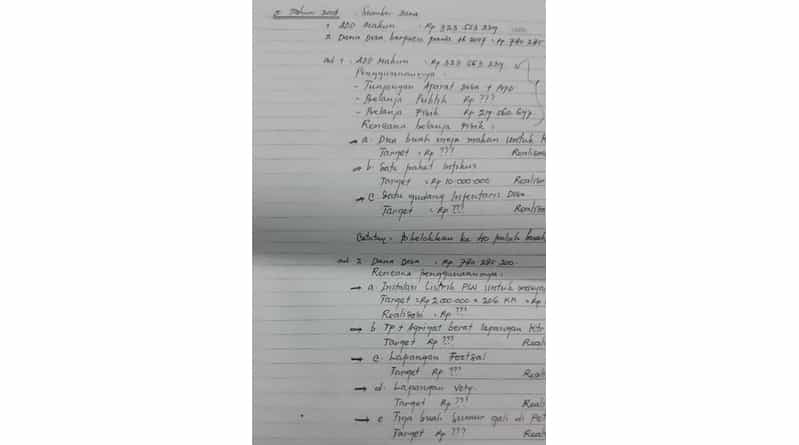 Tahun 2017 : Sumber Dana
1. ADD Makun : Rp 323.563.339
2. Dana Desa bergulir pada th 2017 : Rp 780.285
ad 1. ADD Makun : Rp 323.563.339
Penggunaannya :
- Tunjangan Aparat Desa + BPD
- Belanja Publik Rp ???
- Belanja Fisik Rp 217.060.647
Rencana belanja Fisik :
→ a. Dua buah meja makan untuk K
Target : Rp ??? Realisas
→ b. Satu paket
Target : Rp 10.000.000 Realisa
→ c. Satu gudang Infentaris Desa
Target : Rp ??? Realisa
Catatan : Dibelokkan ke 40 buah
ad 2. Dana Desa : Rp 780.285.200
Rencana penggunaannya :
→ a. Instalasi Listrik PLN untuk
Target : Rp 2.000.000 x 206 KK = Rp
Realisasi : Rp ???
→ b. TP + Agrigat berat lapangan Ktr
Target Rp ??? Reali
→ c. Lapangan Footsal
Target Rp ??? Reali
→ d. Lapangan Voly
Target Rp ??? Reali
→ e. Tiga buah sumur gali di
Target Rp ??? Reali